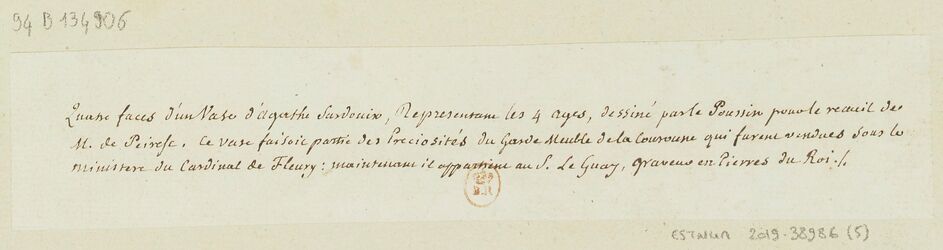 94 B 134906
Quatre faces d'un Vase d'agathe Sardoine, Representant les 4 ages, dessiné par le Poussin pour le recueil de
M. de Peiresc. Ce vase faisoit partie des Preciosités du Garde Meuble de la Couronne qui furent vendues sous le
ministere du Cardinal de Fleury: maintenant il appartient au S. Le Guay, graveur en Pierres du Roi./.
B.R
ESTNUM 2019-38986 (5)